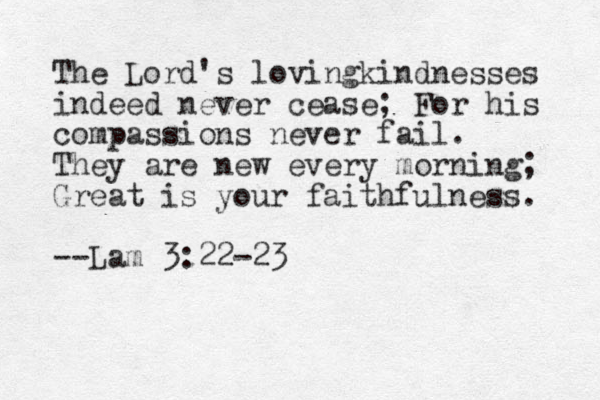 The Lord's lovingkindnesses
indeed never cease; For his
compassions never fail.
They are new every morning;
Great is your faithfulness.
--Lam 3:22-23